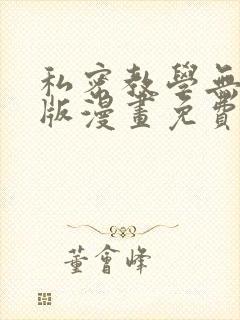 私密教學無
版漫畫免費
董會峰